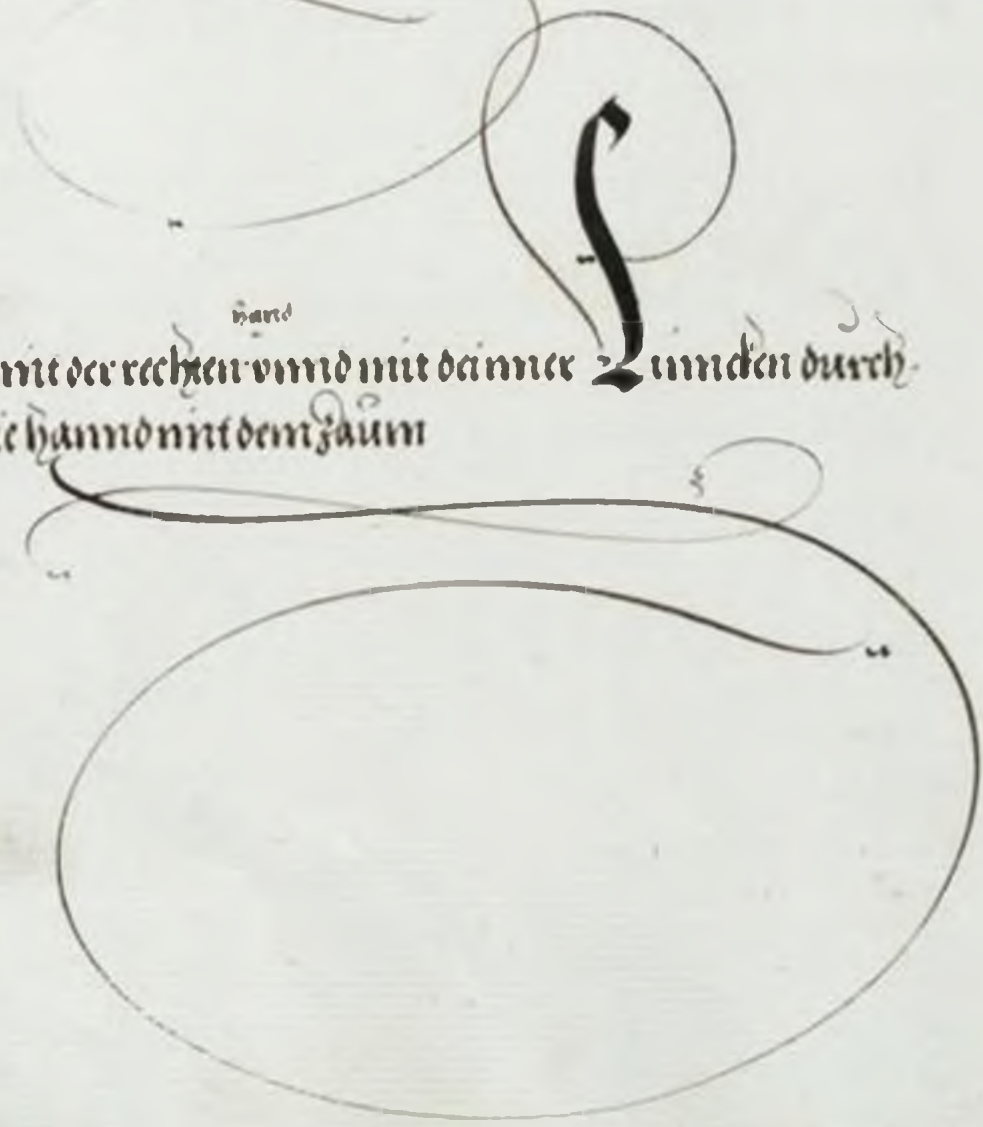 hand
mit der rechten vnnd mit deinner Linncken durch
hannd mit dem zaum